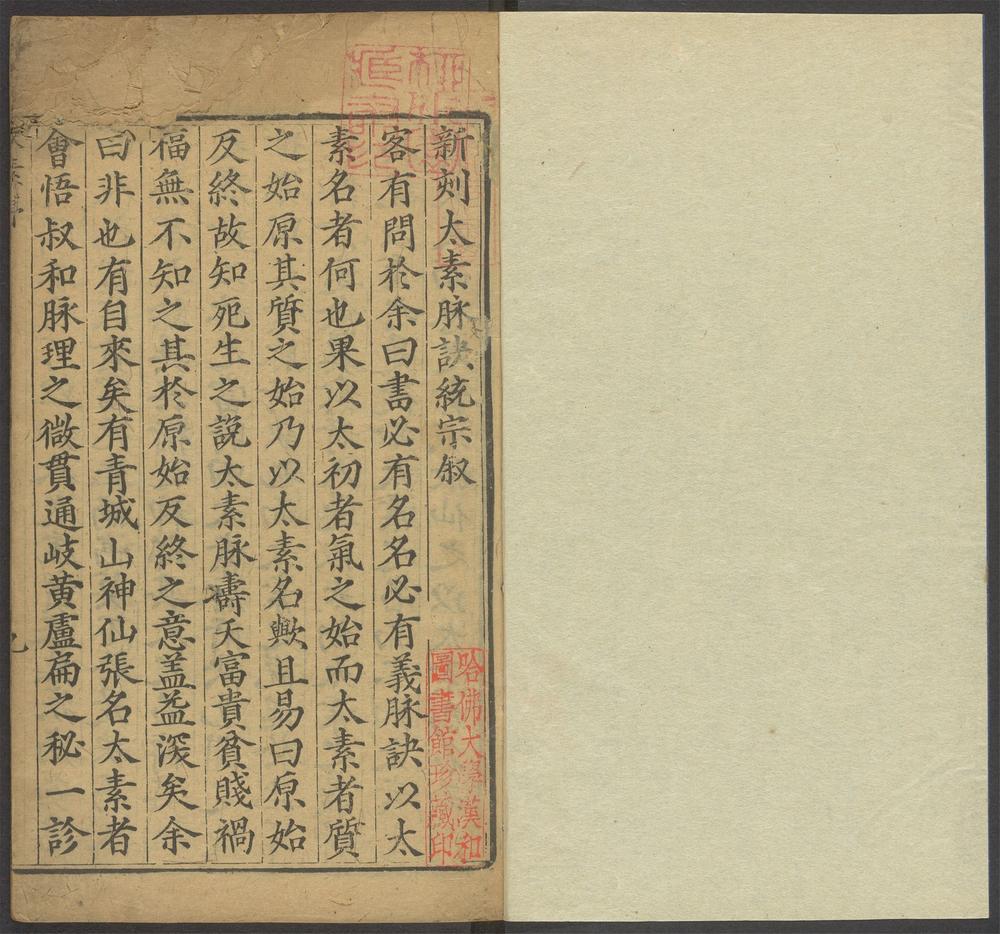 新刻太素脉訣統宗叙
客有問於余曰書必有名名必有義脉訣以太
素名者何也果以太初者氣之始而太素者質
之始原其質之始乃以太素名歟且易曰原始
反終故知死生之説太素脉壽夭富貴貧賤禍
福無不知之其於原始反終之意盖益深矣余
曰非也有自來矣有青城山神仙張名太素者
會悟叔和脉理之微貫通岐黄盧扁之秘一診
哈佛大學漢和
圖書館珍藏印